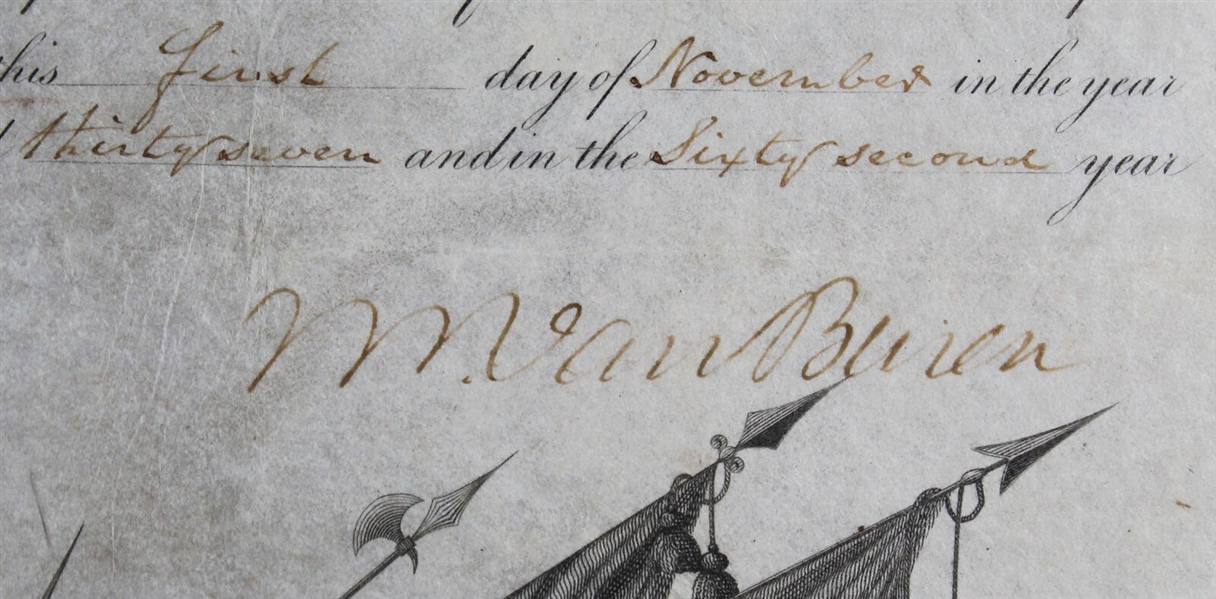 this first day of November in the year
thirty seven and in the Sixty second year
M. Van Buren